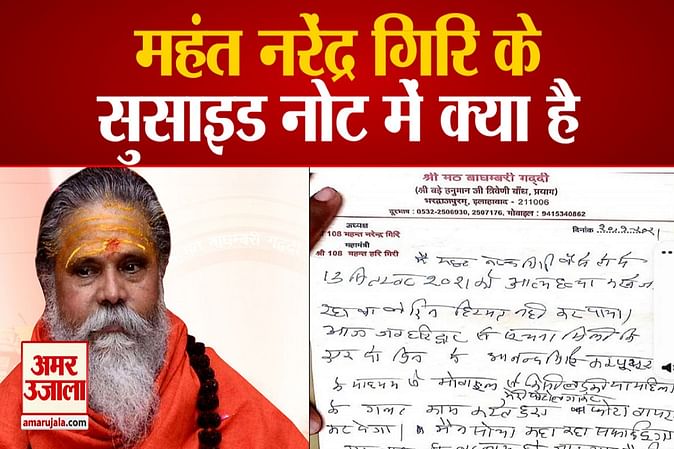 महंत नरेंद्र गिरि के
सुसाइड नोट में क्या है
श्री मठ बाघम्बरी गद्दी
(श्री बड़े हनुमान जी त्रिवेणी बाँध, प्रयाग)
भरद्वाजपुरम्, इलाहाबाद - 211006
दूरभाष : 0532-2506930, 2507176, मोबाइल : 9415340862
अध्यक्ष
श्री 108 महन्त नरेन्द्र गिरि
महामंत्री
श्री 108 महन्त हरि गिरी
दिनांक
मै महन्त नरेन्द्र गिरी
13 सितम्बर 2021 को आत्महत्या करने जा
रहा था लेकिन हिम्मत नही कर पाया।
आज जब हरिद्वार से सूचना मिली कि
एक दो दिन में आनन्द गिरि कम्प्यूटर
के माध्यम से मोबाइल से किसी लड़की या महिला
के गलत काम करते हुए फोटो वायरल
कर देगा। मैने सोचा कहा तक सफाई दूंगा
अमर
उजाला
amarujala.com